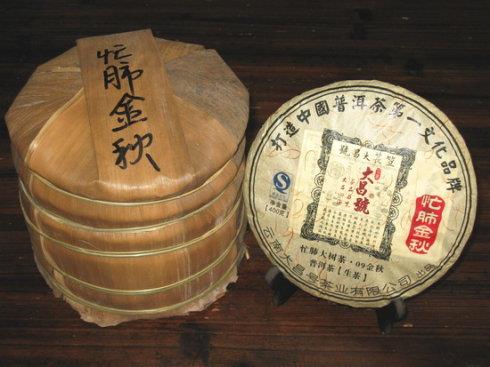 忙肺金秋
打造中國普洱茶第一文化品牌
號昌大
大昌號
净含量
[400克]
忙肺金秋
忙肺大树茶·09金秋
普洱茶【生茶】
云南大昌号茶业有限公司 出品